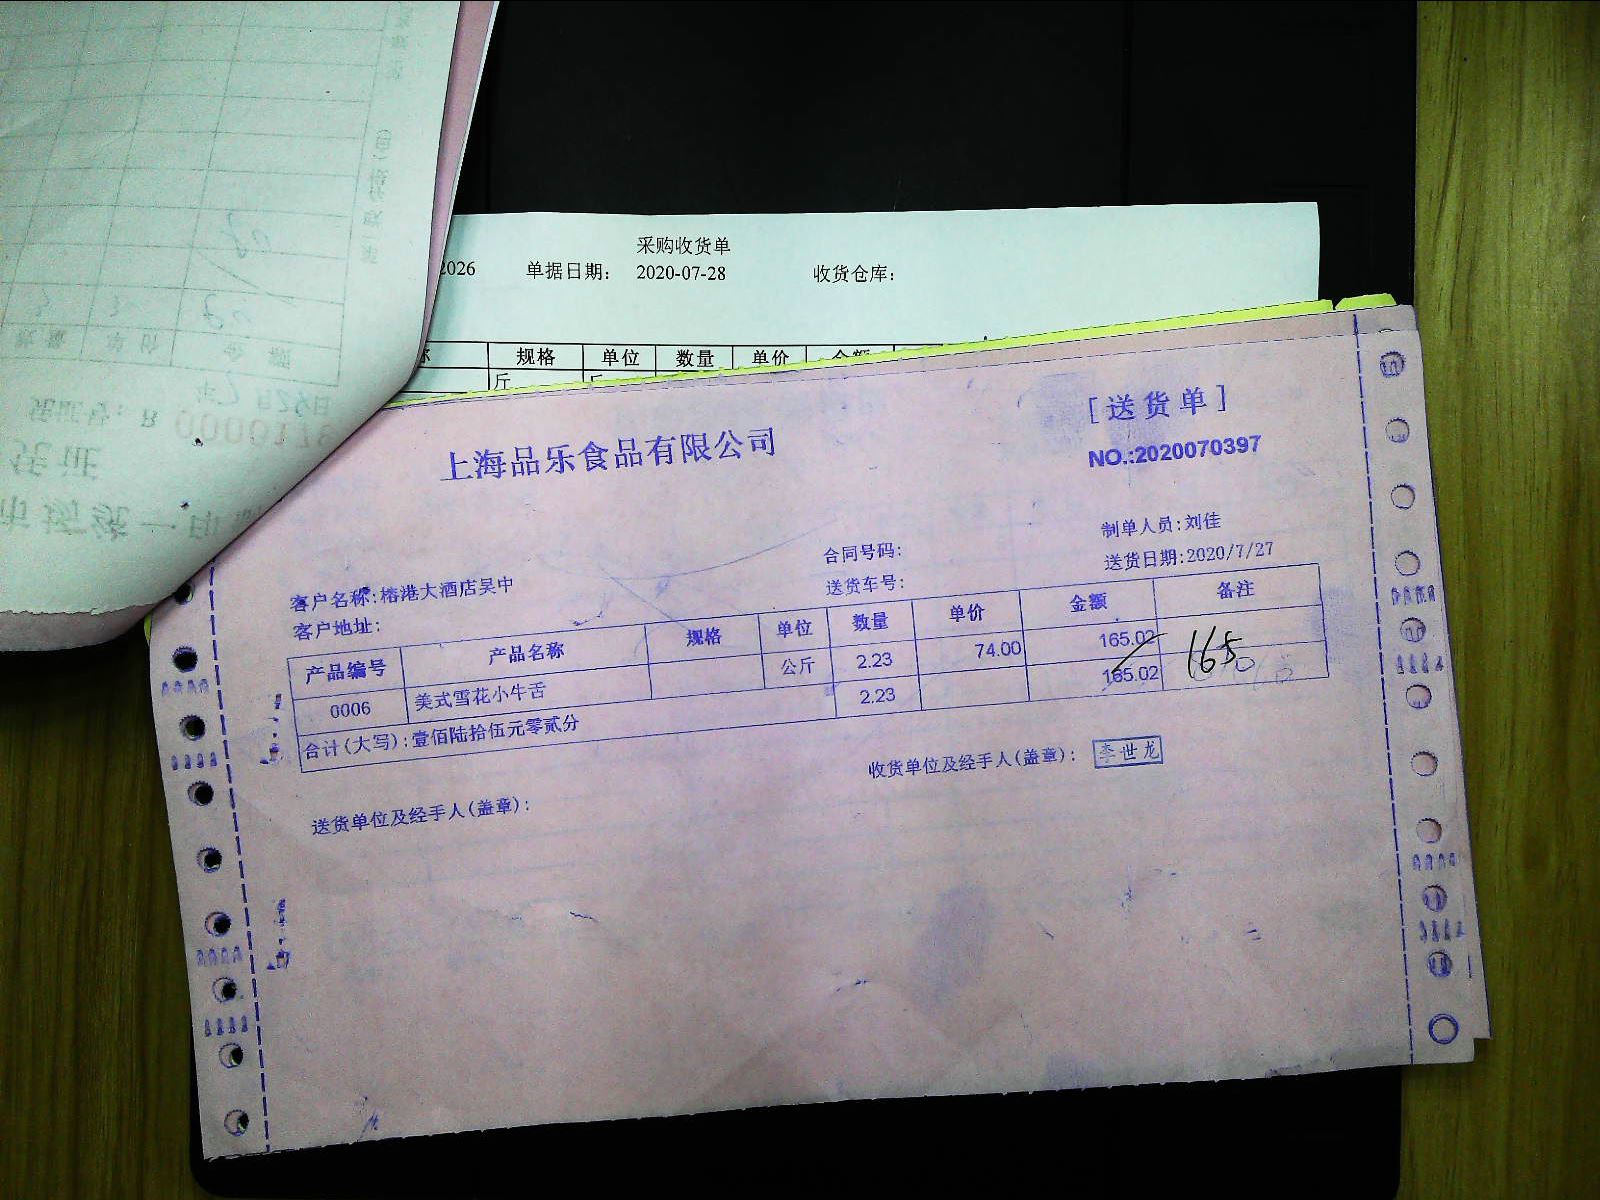 采购收货单
2026 单据日期： 2020-07-28 收货仓库：
规格 单位 数量 单价 金额
斤
上海品乐食品有限公司
[送货单]
NO.:2020070397
制单人员:刘佳
合同号码:
送货日期:2020/7/27
客户名称:榕港大酒店吴中
送货车号:
客户地址:
产品编号 产品名称 规格 单位 数量 单价 金额 备注
0006 美式雪花小牛舌 公斤 2.23 74.00 165.02
合计(大写):壹佰陆拾伍元零贰分 2.23 165.02
165
收货单位及经手人(盖章): 李世龙
送货单位及经手人(盖章):